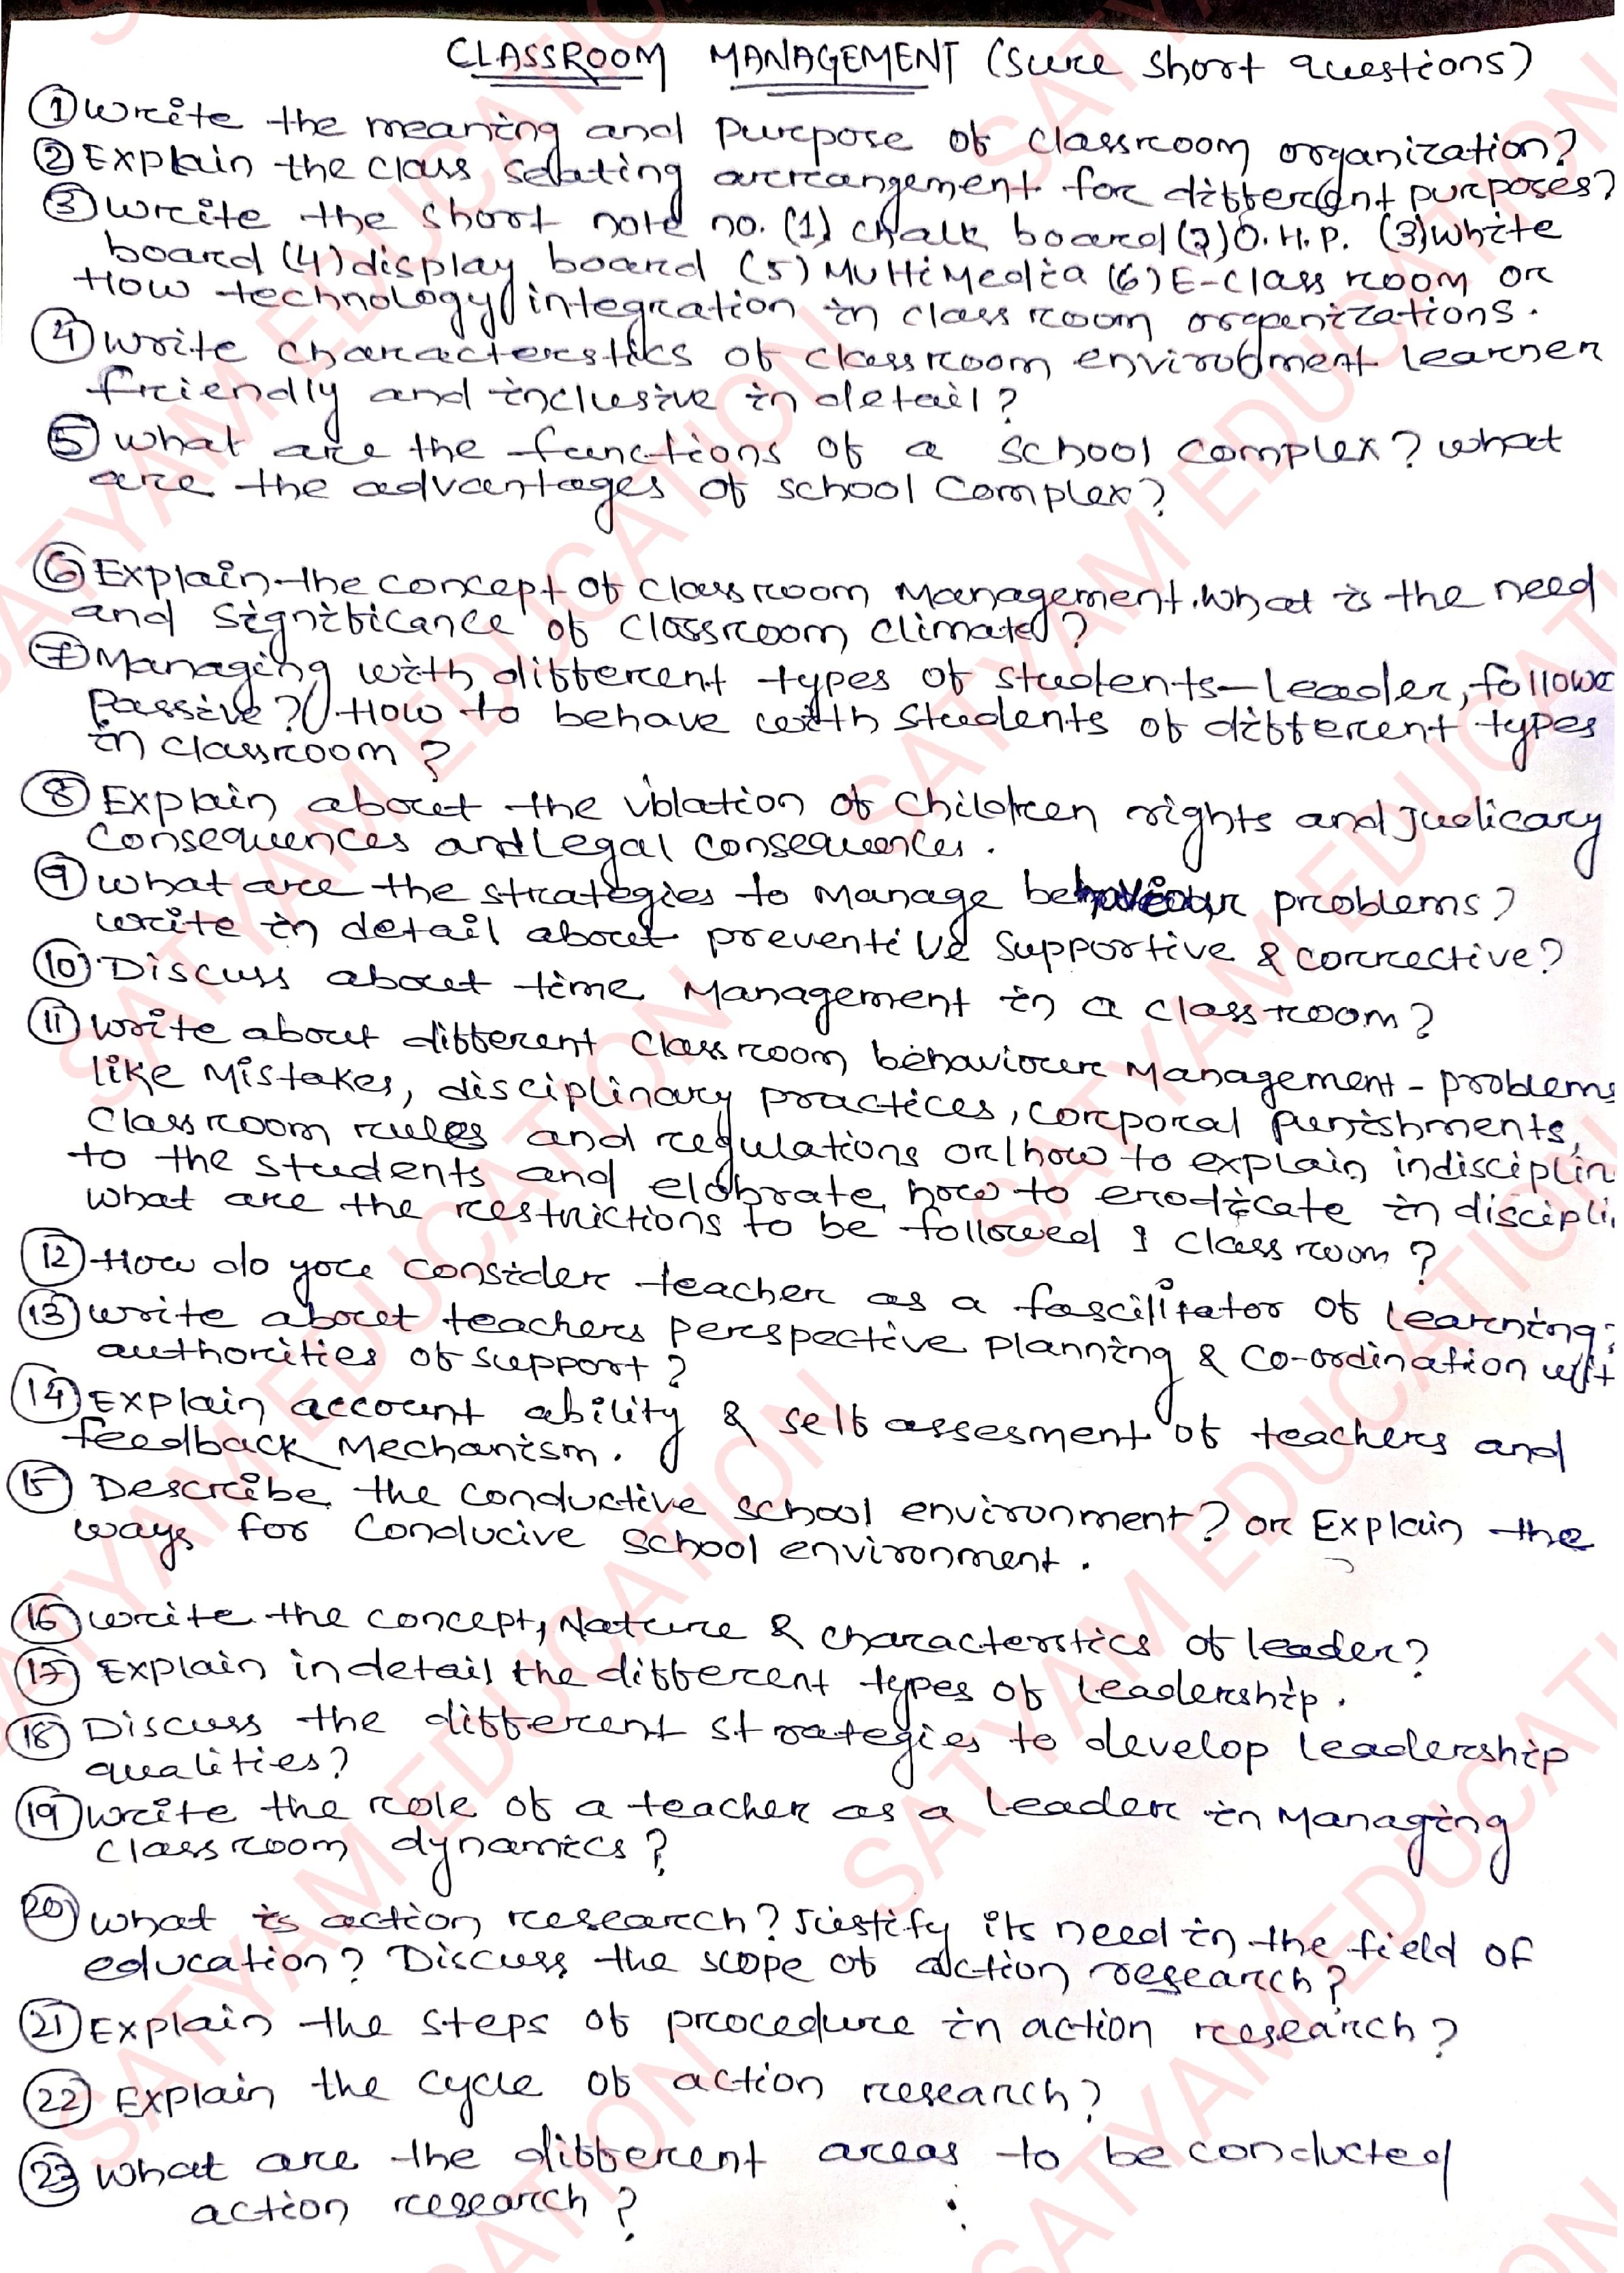 CLASSROOM MANAGEMENT (Sure short questions)
① Write the meaning and purpose of classroom organization?
② Explain the class seating arrangement for different purposes?
③ Write the short note no. (1) chalk board (2) O.H.P. (3) white
board (4) display board (5) Multimedia (6) E-class room or
How technology integration in class room organizations.
④ Write characterstics of classroom environment learner
friendly and inclusive in detail?
⑤ What are the functions of a school complex? what
are the advantages of school complex?
⑥ Explain the concept of classroom Management. What is the need
and significance of classroom climate?
⑦ Managing with different types of students- leader, followe
Passive? How to behave with students of different types
in classroom?
⑧ Explain about the violation of children rights and Judicary
Consequences and Legal consequences.
⑨ What are the strategies to manage behaviour problems?
write in detail about preventive supportive & corrective?
⑩ Discuss about time Management in a class room?
⑪ Write about different class room behaviour Management - problems
like Mistakes, disciplinary practices, corporal punishments,
Class room rules and regulations or/how to explain indisciplin
to the students and elobrate how to erodicate in discipli
what are the restrictions to be followed I class room?
⑫ How do you consider teacher as a fascilitator of learning
⑬ Write about teachers perspective planning & co-ordination wit
authorities of support?
⑭ Explain account ability & self assesment of teachers and
feedback Mechanism.
⑮ Describe the conductive school environment? or Explain the
ways for conducive school environment.
⑯ Write the concept, Nature & characterstics of leader?
⑰ Explain in detail the different types of leadership.
⑱ Discuss the different strategies to develop leadership
qualities?
⑲ Write the role of a teacher as a leader in Managing
classroom dynamics?
⑳ What is action research? Justify its need in the field of
education? Discuss the scope of action research?
㉑ Explain the steps of procedure in action research?
㉒ Explain the cycle of action research?
㉓ What are the different areas to be conducted
action research?
SATYAM EDUCATION